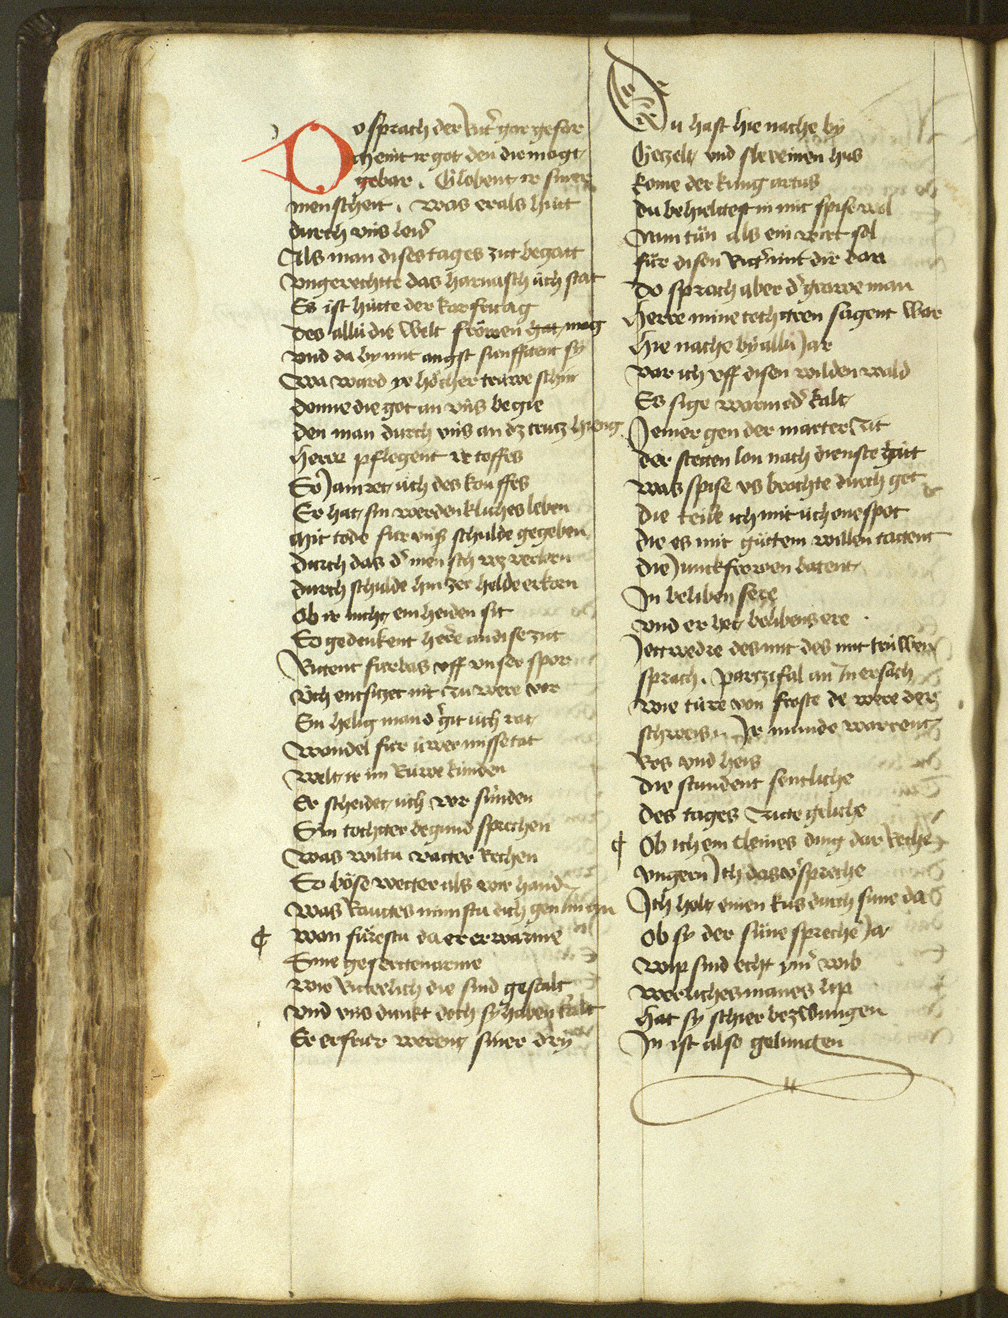 Do sprach der Ritter gar gefar
Meint ir got den die magt
gebar. Globent ir siner
menscheit. Was er als hút
durch vns leid
Als man dises tages zit begatt
vngerechtte das harnasch úch stat
Es ist hútte der karfritag
Des allú die welt frówen mag
vnd da by mit angst súnfftent sy
Wa ward ye hócher trúwe schin
Denne die got an vns begie
Den man durch vns an dz crutz hieng
Herre pflegent ir toffes
So jamret úch des kouffes
Er hat sin werdenkliches leben
Mit tode fur vns schulde gegeben
Durch das der mensch wz verlorn
Durch schulde hin zer helde erkorn
Ob ir nicht ein heiden sit
So gedenkent here an dise zit
Ritent furbas vff vnser spor
Úch entsitzet nit zu were vor
Ein helig man der git úch rat
Wandel fur úwer missetat
Welt ir im Rúwe kúnden
Er scheidet úch vor súnden
Sin tochter begund sprechen
Was wiltu vatter Rechen
So bóse wetter als wir hand
Was Rautes nimstu dich gen im an
Wan fúrestu da er erwarme
Sine geserttenarme
Wie Ritterlich die sind gestalt
vnd vns dunkt doch sy haben kalt
Er erfrúr werent siner dry
Du hast hie nache by
Gezelt vnd sleveinen hus
Kome der kúng artus
Du behieltest in mit spise wol
Nun tún als ein wirt sol
Fúr disen Ritter mit dir dan
Do sprach aber der grawe man
Herre mine tochtren sagent war
Hie nache by allú jar
Var ich vff disen wilden wald
Es sige warm oder kalt
Jemer gen der marter zit
Der stetten lon nach dienste git
Was spise vs brachte durch got
Die teile ich mit úch one spot
Die es mit gúttem willen tatent
Die junckfrowen batent
In beliben sere
vnd er het belibens ere
Jettwedre des mit des mit trúwen
sprach. Partzifal an in ersach
Wie túre von froste de were der
schweis. Ir munde warrent
Ros vnd heis
Die stundent sentliche
Des tages Zitte geliche
Ob ich ein Cleines ding dar Reche
vngern Ich das verspreche
Ich holt einen kus durch sune da
Ob sy der súne spreche ja
Wip sind echt ym̄ wib
Werliches manes lip
Hat sy schier bezwungen
In ist also gelungen